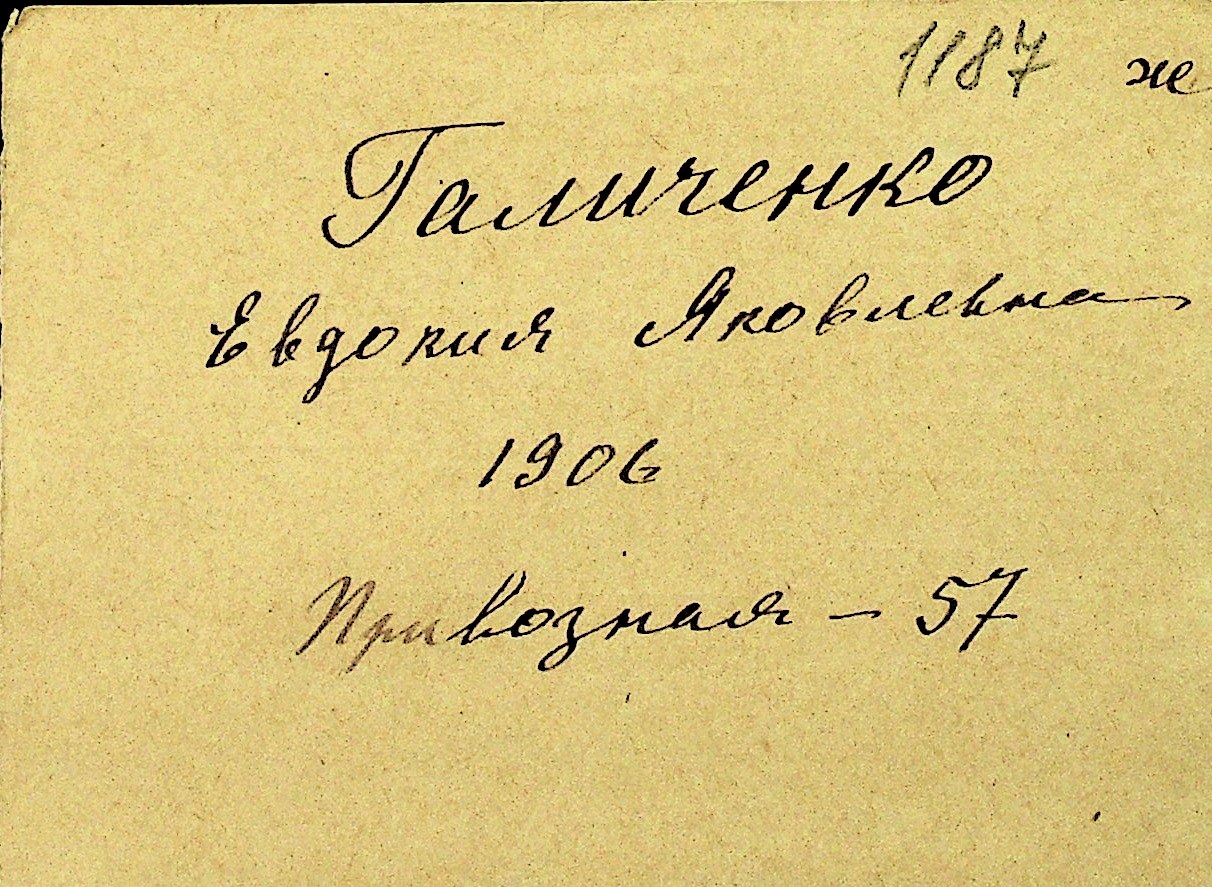 1187 ж
Галиченко
Евдокия Яковлевна
1906
Привозная - 57